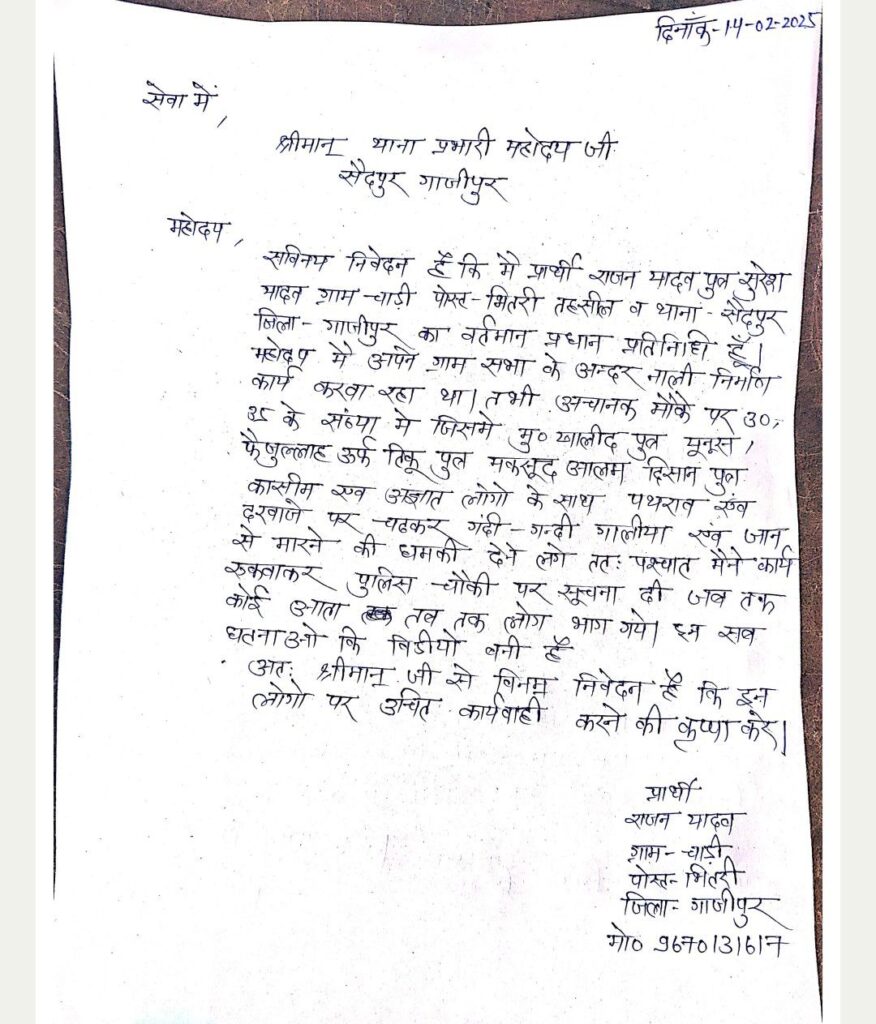 दिनाँक-14-02-2025
सेवा में,
श्रीमान् थाना प्रभारी महोदय जी
सैदपुर गाजीपुर
महोदय,
सविनय निवेदन है कि मै प्रार्थी राजन यादव पुत्र सुरेश
यादव ग्राम-चाड़ी पोस्ट-भितरी तहसील व थाना-सैदपुर
जिला-गाजीपुर का वर्तमान प्रधान प्रतिनिधि हूँ।
महोदय मै अपने ग्राम सभा के अन्दर नाली निर्माण
कार्य करवा रहा था। तभी अचानक मौके पर 30,
35 के संख्या मे जिसमे मु० खालीद पुत्र यूनूस,
फैजुल्लाह उर्फ टिंकू पुत्र मकसूद आलम दिसान पुत्र
कासीम एंव अज्ञात लोगो के साथ पथराव एंव
दरवाजे पर चढकर गंदी-गन्दी गालीया एंव जान
से मारने की धमकी देने लगे ततः पश्चात मैने कार्य
रुकवाकर पुलिस चौकी पर सूचना दी जब तक
कोई आता तब तक लोग भाग गये। इन सब
घतनाओ कि विडीयो बनी है
अतः श्रीमान् जी से विनम्र निवेदन है कि इन
लोगो पर उचित कार्यवाही करने की कृप्पा करे।
प्रार्थी
राजन यादव
ग्राम-चाड़ी
पोस्ट-भितरी
जिला-गाजीपुर
मो० 9670131617